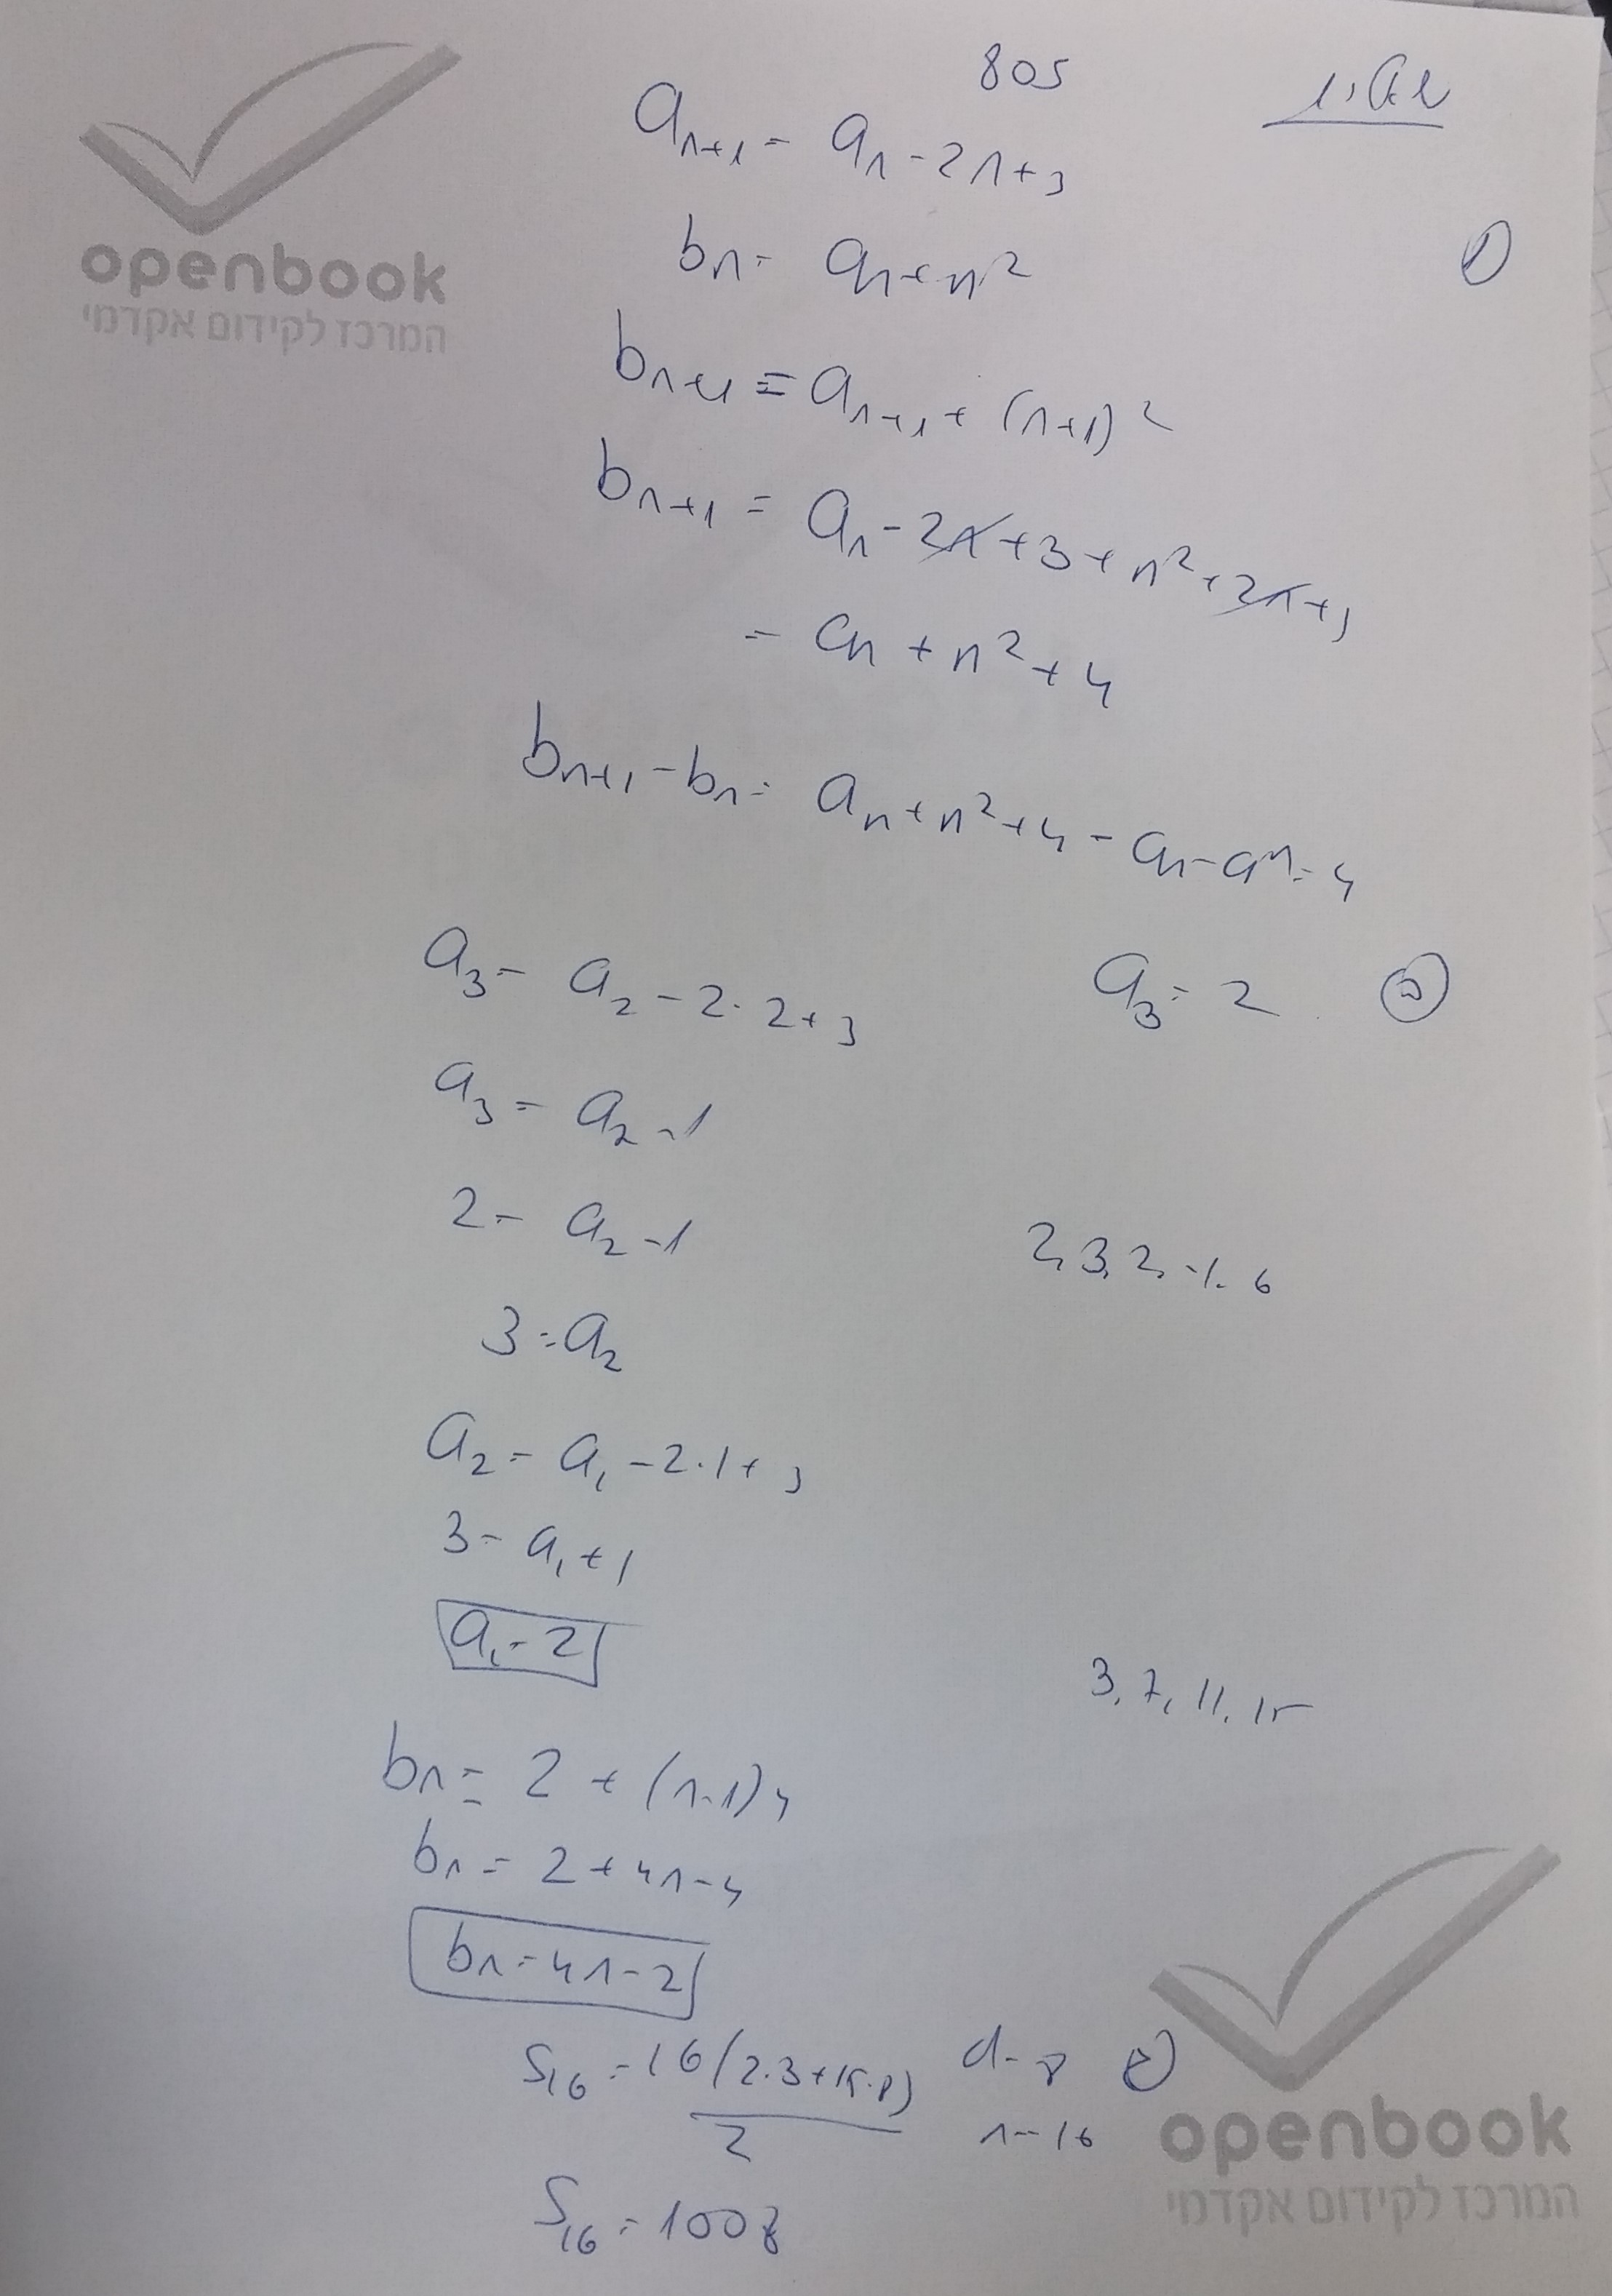 805
a_{n+1} = a_n - 2n + 3
openbook
המרכז לקידום אקדמי
b_n = a_n + n^2
b_{n+1} = a_{n+1} + (n+1)^2
b_{n+1} = a_n - 2n + 3 + n^2 + 2n + 1
= a_n + n^2 + 4
b_{n+1} - b_n = a_n + n^2 + 4 - a_n - a^n = 4
a_3 = 2
a_3 = a_2 - 2·2 + 3
a_3 = a_2 - 1
2 = a_2 - 1
2, 3, 2, -1, 6
3 = a_2
a_2 = a_1 - 2·1 + 3
3 = a_1 + 1
a_1 = 2
3, 7, 11, 15
b_n = 2 + (n-1)4
b_n = 2 + 4n - 4
b_n = 4n - 2
d = 8
n = 16
S_{16} = 16(2·3+15·8)/2
S_{16} = 1008
openbook
המרכז לקידום אקדמי